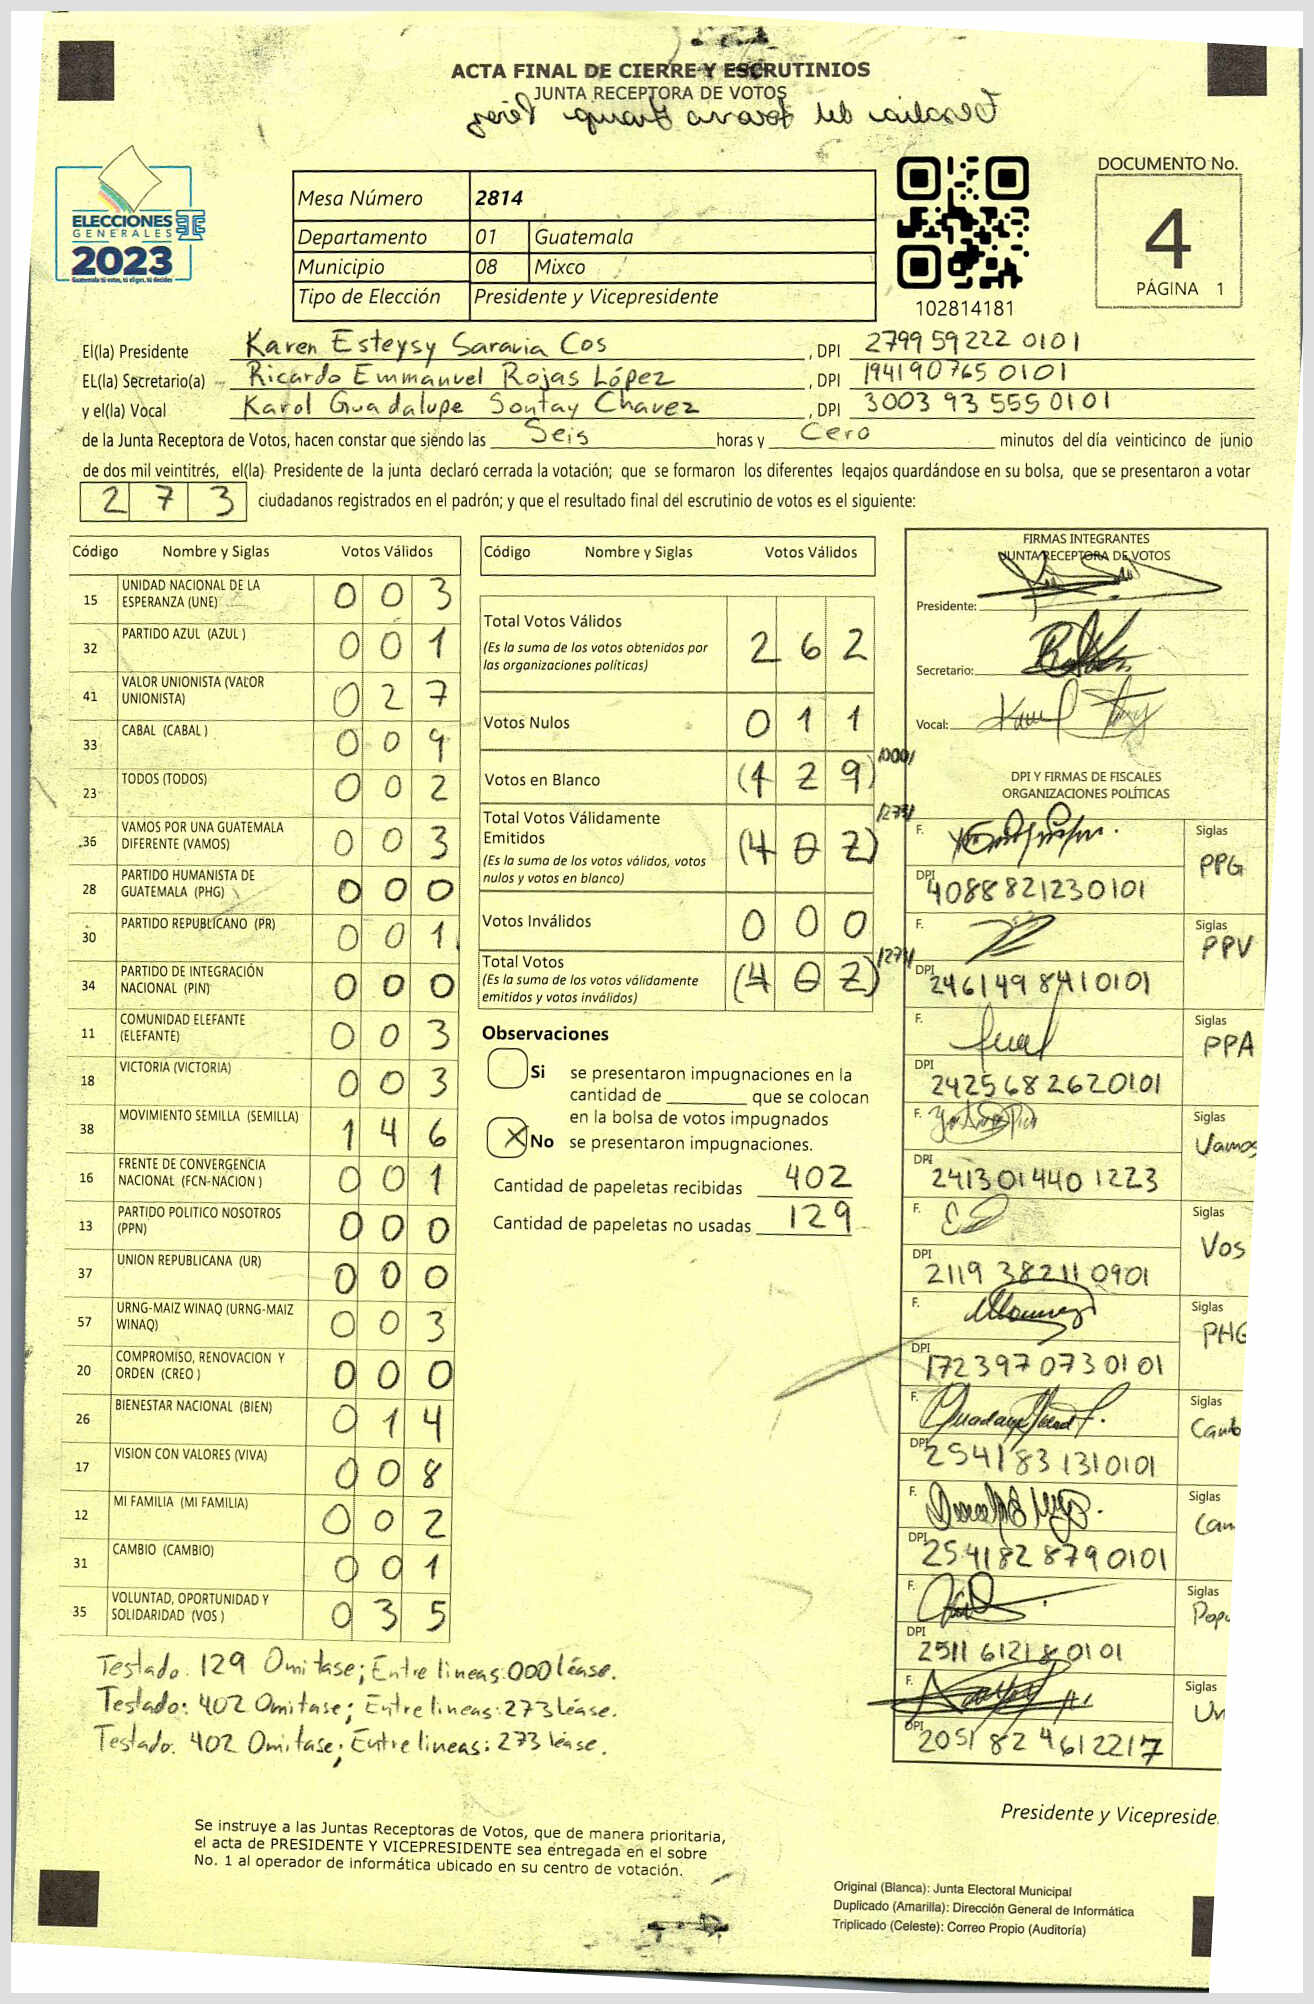 ACTA FINAL DE CIERRE Y ESCRUTINIOS
JUNTA RECEPTORA DE VOTOS
ELECCIONES
GENERALES
2023
Guatemala tú votas, tú eliges, tú decides
Mesa Número 2814
Departamento 01 Guatemala
Municipio 08 Mixco
Tipo de Elección Presidente y Vicepresidente
102814181
DOCUMENTO No.
4
PÁGINA 1
El(la) Presidente Karen Esteysy Saravia Cos , DPI 2799 59222 0101
EL(la) Secretario(a) Ricardo Emmanuel Rojas López , DPI 194190765 0101
y el(la) Vocal Karol Guadalupe Sontay Chavez , DPI 3003 93 555 0101
de la Junta Receptora de Votos, hacen constar que siendo las Seis horas y Cero minutos del día veinticinco de junio
de dos mil veintitrés, el(la) Presidente de la junta declaró cerrada la votación; que se formaron los diferentes legajos guardándose en su bolsa, que se presentaron a votar
2 7 3 ciudadanos registrados en el padrón; y que el resultado final del escrutinio de votos es el siguiente:
Código Nombre y Siglas Votos Válidos
15 UNIDAD NACIONAL DE LA ESPERANZA (UNE) 0 0 3
32 PARTIDO AZUL (AZUL ) 0 0 1
41 VALOR UNIONISTA (VALOR UNIONISTA) 0 2 7
33 CABAL (CABAL ) 0 0 9
23 TODOS (TODOS) 0 0 2
36 VAMOS POR UNA GUATEMALA DIFERENTE (VAMOS) 0 0 3
28 PARTIDO HUMANISTA DE GUATEMALA (PHG) 0 0 0
30 PARTIDO REPUBLICANO (PR) 0 0 1
34 PARTIDO DE INTEGRACIÓN NACIONAL (PIN) 0 0 0
11 COMUNIDAD ELEFANTE (ELEFANTE) 0 0 3
18 VICTORIA (VICTORIA) 0 0 3
38 MOVIMIENTO SEMILLA (SEMILLA) 1 4 6
16 FRENTE DE CONVERGENCIA NACIONAL (FCN-NACION ) 0 0 1
13 PARTIDO POLITICO NOSOTROS (PPN) 0 0 0
37 UNION REPUBLICANA (UR) 0 0 0
57 URNG-MAIZ WINAQ (URNG-MAIZ WINAQ) 0 0 3
20 COMPROMISO, RENOVACION Y ORDEN (CREO ) 0 0 0
26 BIENESTAR NACIONAL (BIEN) 0 1 4
17 VISION CON VALORES (VIVA) 0 0 8
12 MI FAMILIA (MI FAMILIA) 0 0 2
31 CAMBIO (CAMBIO) 0 0 1
35 VOLUNTAD, OPORTUNIDAD Y SOLIDARIDAD (VOS ) 0 3 5
Código Nombre y Siglas Votos Válidos
Total Votos Válidos 2 6 2
(Es la suma de los votos obtenidos por
las organizaciones políticas)
Votos Nulos 0 1 1
Votos en Blanco (1 2 9) /000/
Total Votos Válidamente
Emitidos (4 0 2) /273/
(Es la suma de los votos válidos, votos
nulos y votos en blanco)
Votos Inválidos 0 0 0
Total Votos (4 0 2) /273/
(Es la suma de los votos válidamente
emitidos y votos inválidos)
Observaciones
Si se presentaron impugnaciones en la
cantidad de ________ que se colocan
en la bolsa de votos impugnados
X No se presentaron impugnaciones.
Cantidad de papeletas recibidas 402
Cantidad de papeletas no usadas 129
FIRMAS INTEGRANTES
JUNTA RECEPTORA DE VOTOS
Presidente:
Secretario:
Vocal:
DPI Y FIRMAS DE FISCALES
ORGANIZACIONES POLÍTICAS
F. Siglas PPG
DPI 4088821230101
F. Siglas PPV
DPI 2461498410101
F. Siglas PPA
DPI 2425682620101
F. Siglas Vamos
DPI 241301440 1223
F. Siglas Vos
DPI 2119 38211 0901
F. Siglas PHG
DPI 172397073 0101
F. Siglas
DPI 254183131 0101
F. Siglas
DPI 254182 879 0101
F. Siglas
DPI 2511 61218 0101
F. Siglas
DPI 2051 82 461 2217
Testado. 129 Omitase; Entre lineas: 000 léase.
Testado: 402 Omitase; Entre lineas: 273 léase.
Testado. 402 Omitase; Entre lineas: 273 léase.
Se instruye a las Juntas Receptoras de Votos, que de manera prioritaria,
el acta de PRESIDENTE Y VICEPRESIDENTE sea entregada en el sobre
No. 1 al operador de informática ubicado en su centro de votación.
Presidente y Vicepreside
Original (Blanca): Junta Electoral Municipal
Duplicado (Amarilla): Dirección General de Informática
Triplicado (Celeste): Correo Propio (Auditoría)